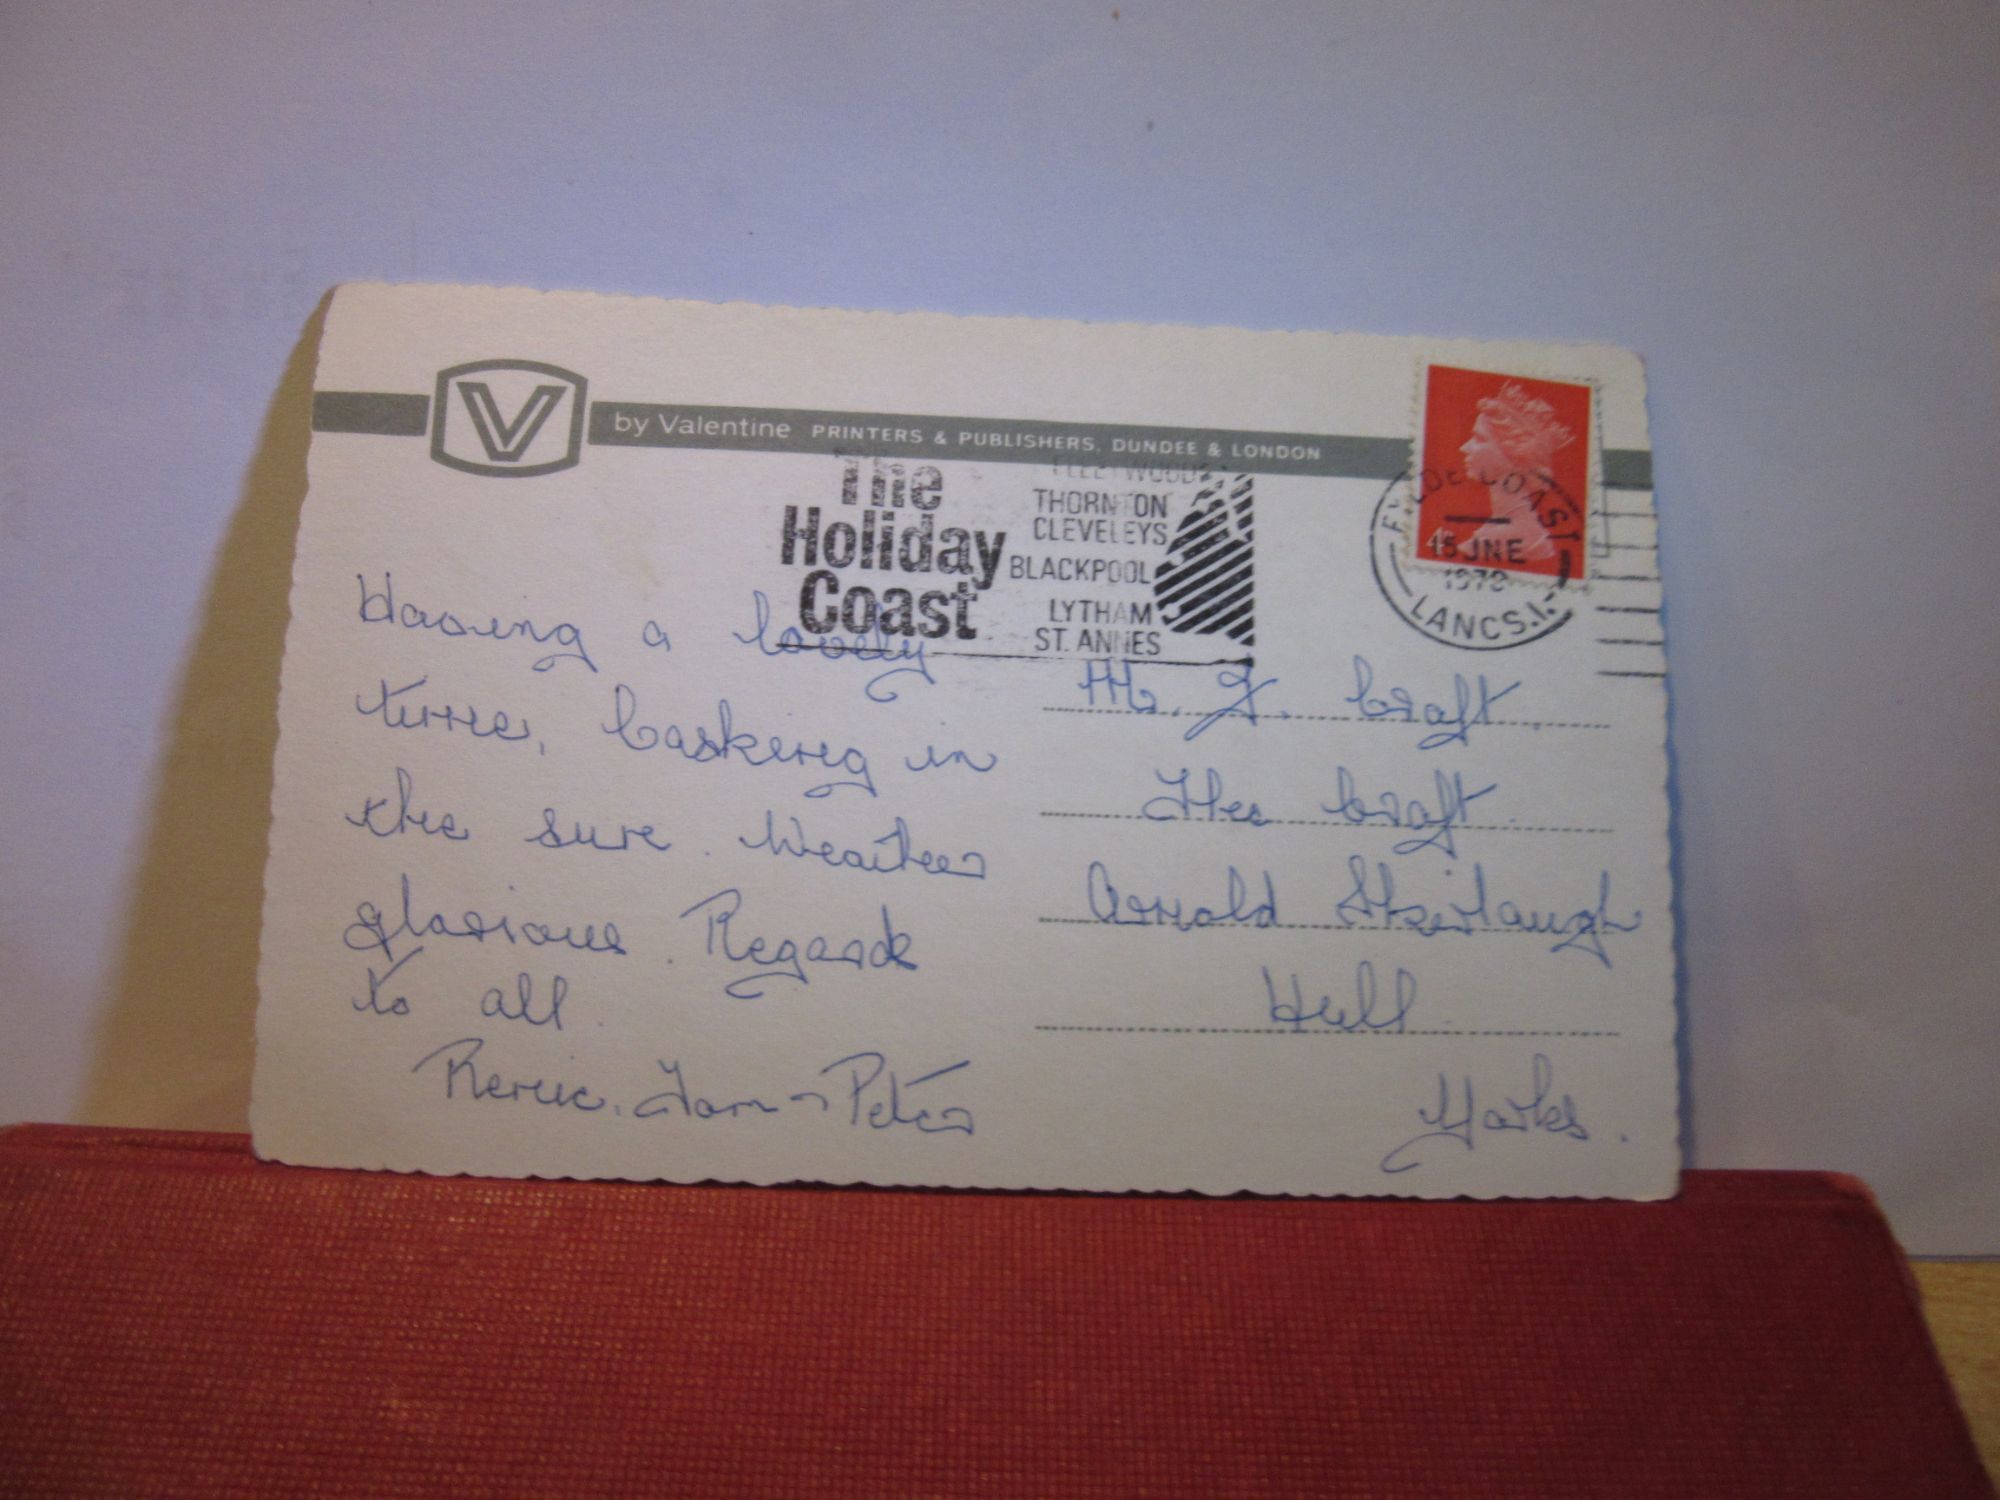 V
by Valentine PRINTERS & PUBLISHERS, DUNDEE & LONDON
The
Holiday
Coast
FLEETWOOD
THORNTON
CLEVELEYS
BLACKPOOL
LYTHAM
ST. ANNES
FYLDE COAST
15 JNE
LANCS.
Having a lovely
time, basking in
the sun. Weather
glorious. Regards
to all.
Peter
Mr. J. Craft
The Craft
Arnold Skirlaugh
Hull
Yorks.